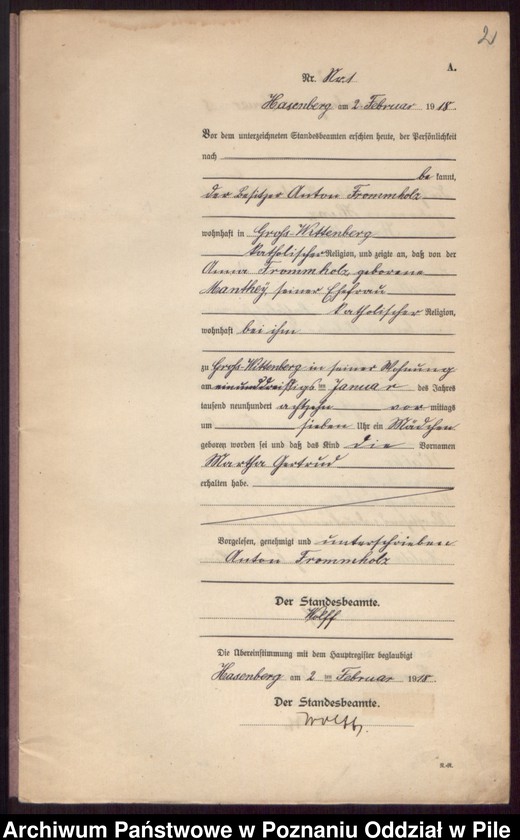 2
A.
Nr. Nr. 1
Hasenberg am 2 Februar 1918.
Vor dem unterzeichneten Standesbeamten erschien heute, der Persönlichkeit
nach
be kannt,
der Besitzer Anton Frommholz
wohnhaft in Groß-Wittenberg
katholischer Religion, und zeigte an, daß von der
Anna Frommholz geborene
Manthey, seiner Ehefrau
katholischer Religion,
wohnhaft bei ihm
zu Groß-Wittenberg in seiner Wohnung
am einunddreißigsten Januar des Jahres
tausend neunhundert achtzehn vor mittags
um sieben Uhr ein Mädchen
geboren worden sei und daß das Kind die Vornamen
Martha Gertrud
erhalten habe.
Vorgelesen, genehmigt und unterschrieben
Anton Frommholz
Der Standesbeamte.
Wolff
Die Übereinstimmung mit dem Hauptregister beglaubigt
Hasenberg am 2 ten Februar 1918.
Der Standesbeamte.
Wolff.
Archiwum Państwowe w Poznaniu Oddział w Pile